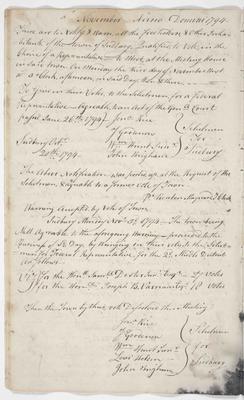 November Anno Domini 1794.
These are to Notify & warn all the freeholders & Other Inha-
bitants of the Town of Sudbury, Qualified to Vote in the
Choice of a Representative to Meet at the Meeting House
in said Town On Monday the third day of November Next
at 2 Clock afternoon, on Said Day
To Give in their Votes, to the Selectmen for a Federal
Representative Agreeable to an Act of the Genl. Court
passd June 26th 1794
Sudbury Octr.
20th 1794
Wm. Hunt Junr.
John Brigham
Selectmen
for
Sudbury
The above Notification was posted up at the Request of the
Selectmen & Agreeable to a former Vote of Town
Pr Newton Maynard T Clerk
Warning Accepted by Vote of Town
Sudbury Monday Novr. 3d 1794 The Town being
Met Agreeable to the aforegoing Warning proceeded to the
Business of Sd Day by bringing in their votes to the Select-
men for Federal Representative, for the 2d Middle District
as follows
Viz for the Honl. Saml. Dexter Junr. Esqr. 27 Votes
for the Honl. Joseph B. Varnum Esqr. 18 Votes
Then the Town by their vote Disolved the Meeting
Wm. Hunt Junr.
John Brigham
Selectmen
for
Sudbury